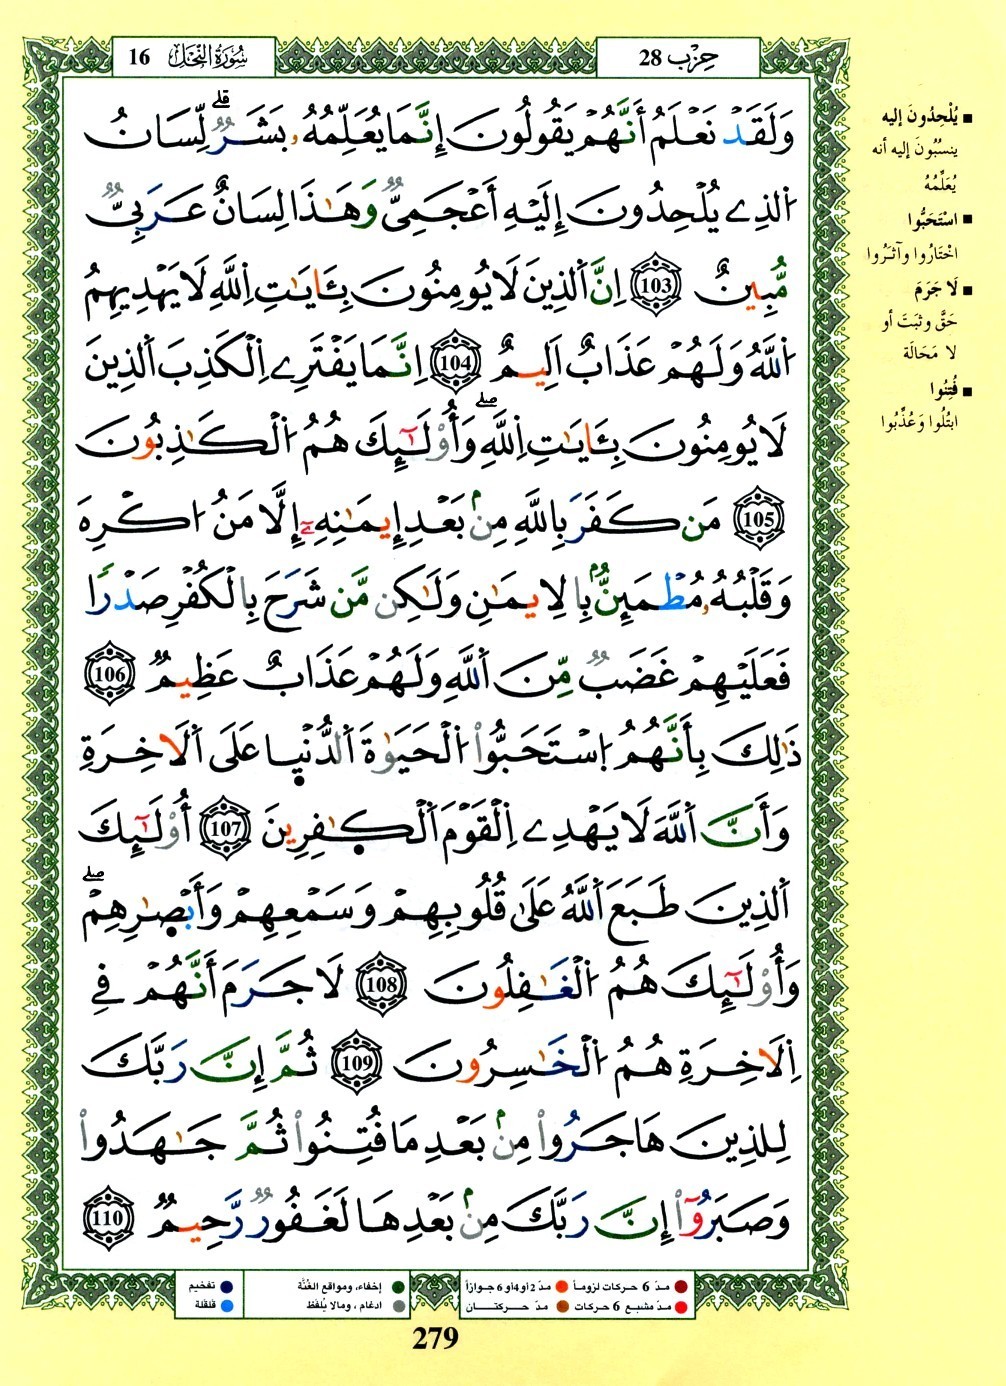 حِزْب 28
سُورَةُ النَّحْل 16
وَلَقَدْ نَعْلَمُ أَنَّهُمْ يَقُولُونَ إِنَّمَا يُعَلِّمُهُۥ بَشَرٌ ۗ لِّسَانُ
اُ۬لذِے يُلْحِدُونَ إِلَيْهِ أَعْجَمِيٌّ وَهَٰذَا لِسَانٌ عَرَبِيٌّ
مُّبِينٌ 103 اِنَّ اَ۬لذِينَ لَا يُومِنُونَ بِـَٔايَٰتِ اِ۬للَّهِ لَا يَهْدِيهِمُ
اُ۬للَّهُ وَلَهُمْ عَذَابٌ اَلِيمٌ 104 اِنَّمَا يَفْتَرِے اِ۬لْكَذِبَ اَ۬لذِينَ
لَا يُومِنُونَ بِـَٔايَٰتِ اِ۬للَّهِ ۖ وَأُوْلَٰٓئِكَ هُمُ اُ۬لْكَٰذِبُونَ
105 مَن كَفَرَ بِاللَّهِ مِنۢ بَعْدِ إِيمَٰنِهِۦٓ إِلَّا مَنُ ا۟كْرِهَ
وَقَلْبُهُۥ مُطْمَئِنٌّۢ بِالِايمَٰنِ وَلَٰكِن مَّن شَرَحَ بِالْكُفْرِ صَدْرًا
فَعَلَيْهِمْ غَضَبٌ مِّنَ اَ۬للَّهِ وَلَهُمْ عَذَابٌ عَظِيمٌ 106
ذَٰلِكَ بِأَنَّهُمُ اُ۪سْتَحَبُّوا۟ اُ۬لْحَيَوٰةَ اَ۬لدُّنْي۪ا عَلَى اَ۬لَاخِرَةِ
وَأَنَّ اَ۬للَّهَ لَا يَهْدِے اِ۬لْقَوْمَ اَ۬لْكٰ۪فِرِينَ 107 أُوْلَٰٓئِكَ
اَ۬لذِينَ طَبَعَ اَ۬للَّهُ عَلَىٰ قُلُوبِهِمْ وَسَمْعِهِمْ وَأَبْصٰ۪رِهِمْ ۖ
وَأُوْلَٰٓئِكَ هُمُ اُ۬لْغَٰفِلُونَ 108 لَا جَرَمَ أَنَّهُمْ فِے
اِ۬لَاخِرَةِ هُمُ اُ۬لْخَٰسِرُونَ 109 ثُمَّ إِنَّ رَبَّكَ
لِلذِينَ هَاجَرُوا۟ مِنۢ بَعْدِ مَا فُتِنُوا۟ ثُمَّ جَٰهَدُوا۟
وَصَبَرُوٓا۟ إِنَّ رَبَّكَ مِنۢ بَعْدِهَا لَغَفُورٌ رَّحِيمٌ 110
■ يُلْحِدُونَ إليه
ينسبُون إليه أنه
يُعَلِّمُهُ
■ اسْتَحَبُّوا
اخْتَارُوا وآثَرُوا
■ لَا جَرَمَ
حَقَّ وثبَتَ أو
لا مَحَالَة
■ فُتِنُوا
ابْتُلُوا وَعُذِّبُوا
مدّ 6 حركات لزوماً مدّ 2 أو 4 أو 6 جوازاً
مدّ مشبع 6 حركات مدّ حركتــان
إخفاء، ومواقع الغُنَّة تفخيم
ادغام، ومالا يُلفظ قلقلة
279